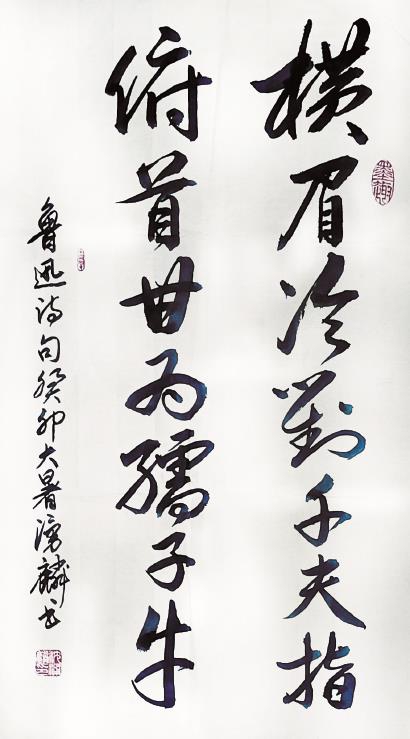 横眉冷對千夫指
俯首甘为孺子牛
鲁迅诗句癸卯大暑湧麟书